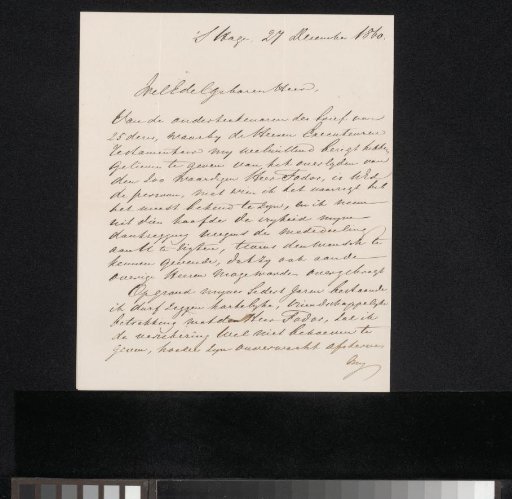 's Hage, 27 December 1860.
WelEdelGeboren Heer,
Van de onderteekenaren der brief van
25 dezer, waarbij de Heeren Executeuren
Testamentair mij welwillend berigt hebben
gelieven te geven van het overlijden van
den zoo waardigen Heer Fodor, is UEd.
de persoon, met wien ik het voorregt heb
het meest bekend te zijn, en ik neem
uit dien hoofde de vrijheid mijne
dankzegging wegens de mededeeling
aan U te rigten, tevens den wensch te
kennen gevende, dat zij ook aan de
overige Heeren moge worden overgebragt
Op grond mijner sedert jaren bestaande
ik durf zeggen hartelijke, vriendschappelijke
betrekking met den Heer Fodor, zal ik
de verzekering wel niet behoeven te
geven, hoezeer zijn onverwacht afsterven
mij